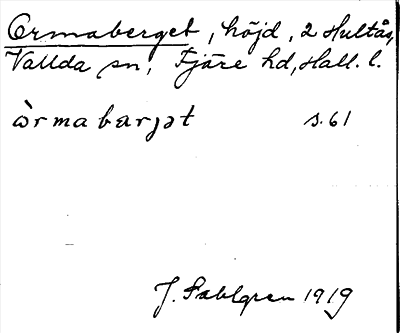 Ormaberget, höjd, 2 Hultås,
Vallda sn, Fjäre hd, Hall. l.
òrmabærjət s. 61
J. Sahlgren 1919